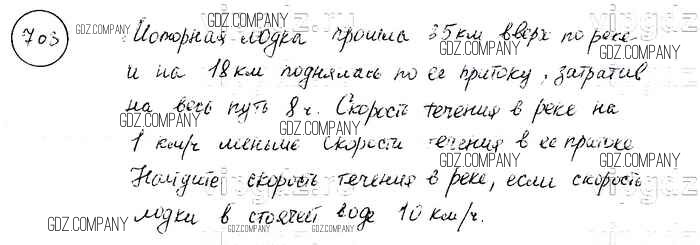 703 Моторная лодка прошла 35км вверх по реке
и на 18км поднялась по ее притоку, затратив
на весь путь 8ч. Скорость течения в реке на
1 км/ч меньше скорости течения в ее притоке
Найдите скорость течения в реке, если скорость
лодки в стоячей воде 10км/ч.
GDZ.COMPANY
GDZ.COMPANY
GDZ.COMPANY
GDZ.COMPANY
GDZ.COMPANY
GDZ.COMPANY
GDZ.COMPANY
GDZ.COMPANY
GDZ.COMPANY
GDZ.COMPANY
GDZ.COMPANY